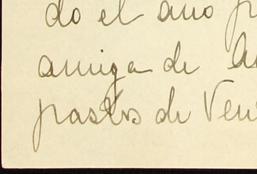 do el año p
amiga de A
pastos de Ven